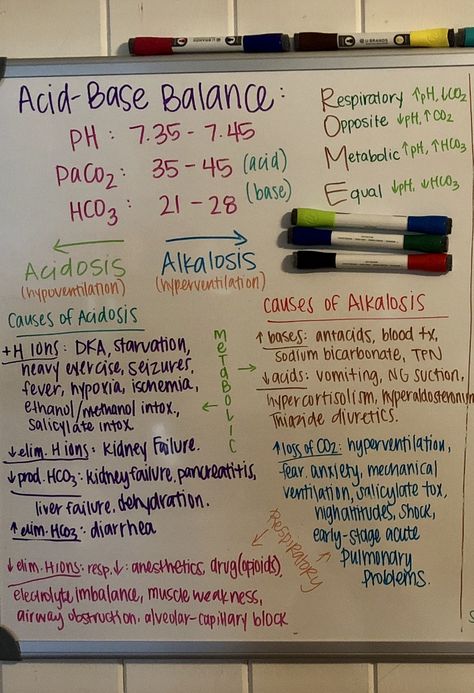 Acid-Base Balance:
PH: 7.35 - 7.45
PaCO2: 35 - 45 (acid)
HCO3: 21 - 28 (base)
Respiratory ↑pH, ↓CO2
Opposite ↓pH, ↑CO2
Metabolic ↑pH, ↑HCO3
Equal ↓pH, ↓HCO3
Acidosis
(hypoventilation)
Alkalosis
(hyperventilation)
Causes of Acidosis
+H ions: DKA, starvation,
heavy exercise, seizures,
fever, hypoxia, ischemia,
ethanol/methanol intox.,
salicylate intox.
↓elim. H ions: Kidney Failure.
↓prod. HCO3: kidney failure, pancreatitis,
liver failure, dehydration.
↑elim. HCO3: diarrhea
METABOLIC
Causes of Alkalosis
↑ bases: antacids, blood tx,
sodium bicarbonate, TPN
↓acids: vomiting, NG suction,
hypercortisolism, hyperaldosteronism
Thiazide diuretics.
↑ loss of CO2: hyperventilation,
fear, anxiety, mechanical
ventilation, salicylate tox,
high altitudes, shock,
early-stage acute
pulmonary
problems.
RESPIRATORY
↓elim. H ions: resp.↓: anesthetics, drug(opioids),
electrolyte imbalance, muscle weakness,
airway obstruction, alveolar-capillary block